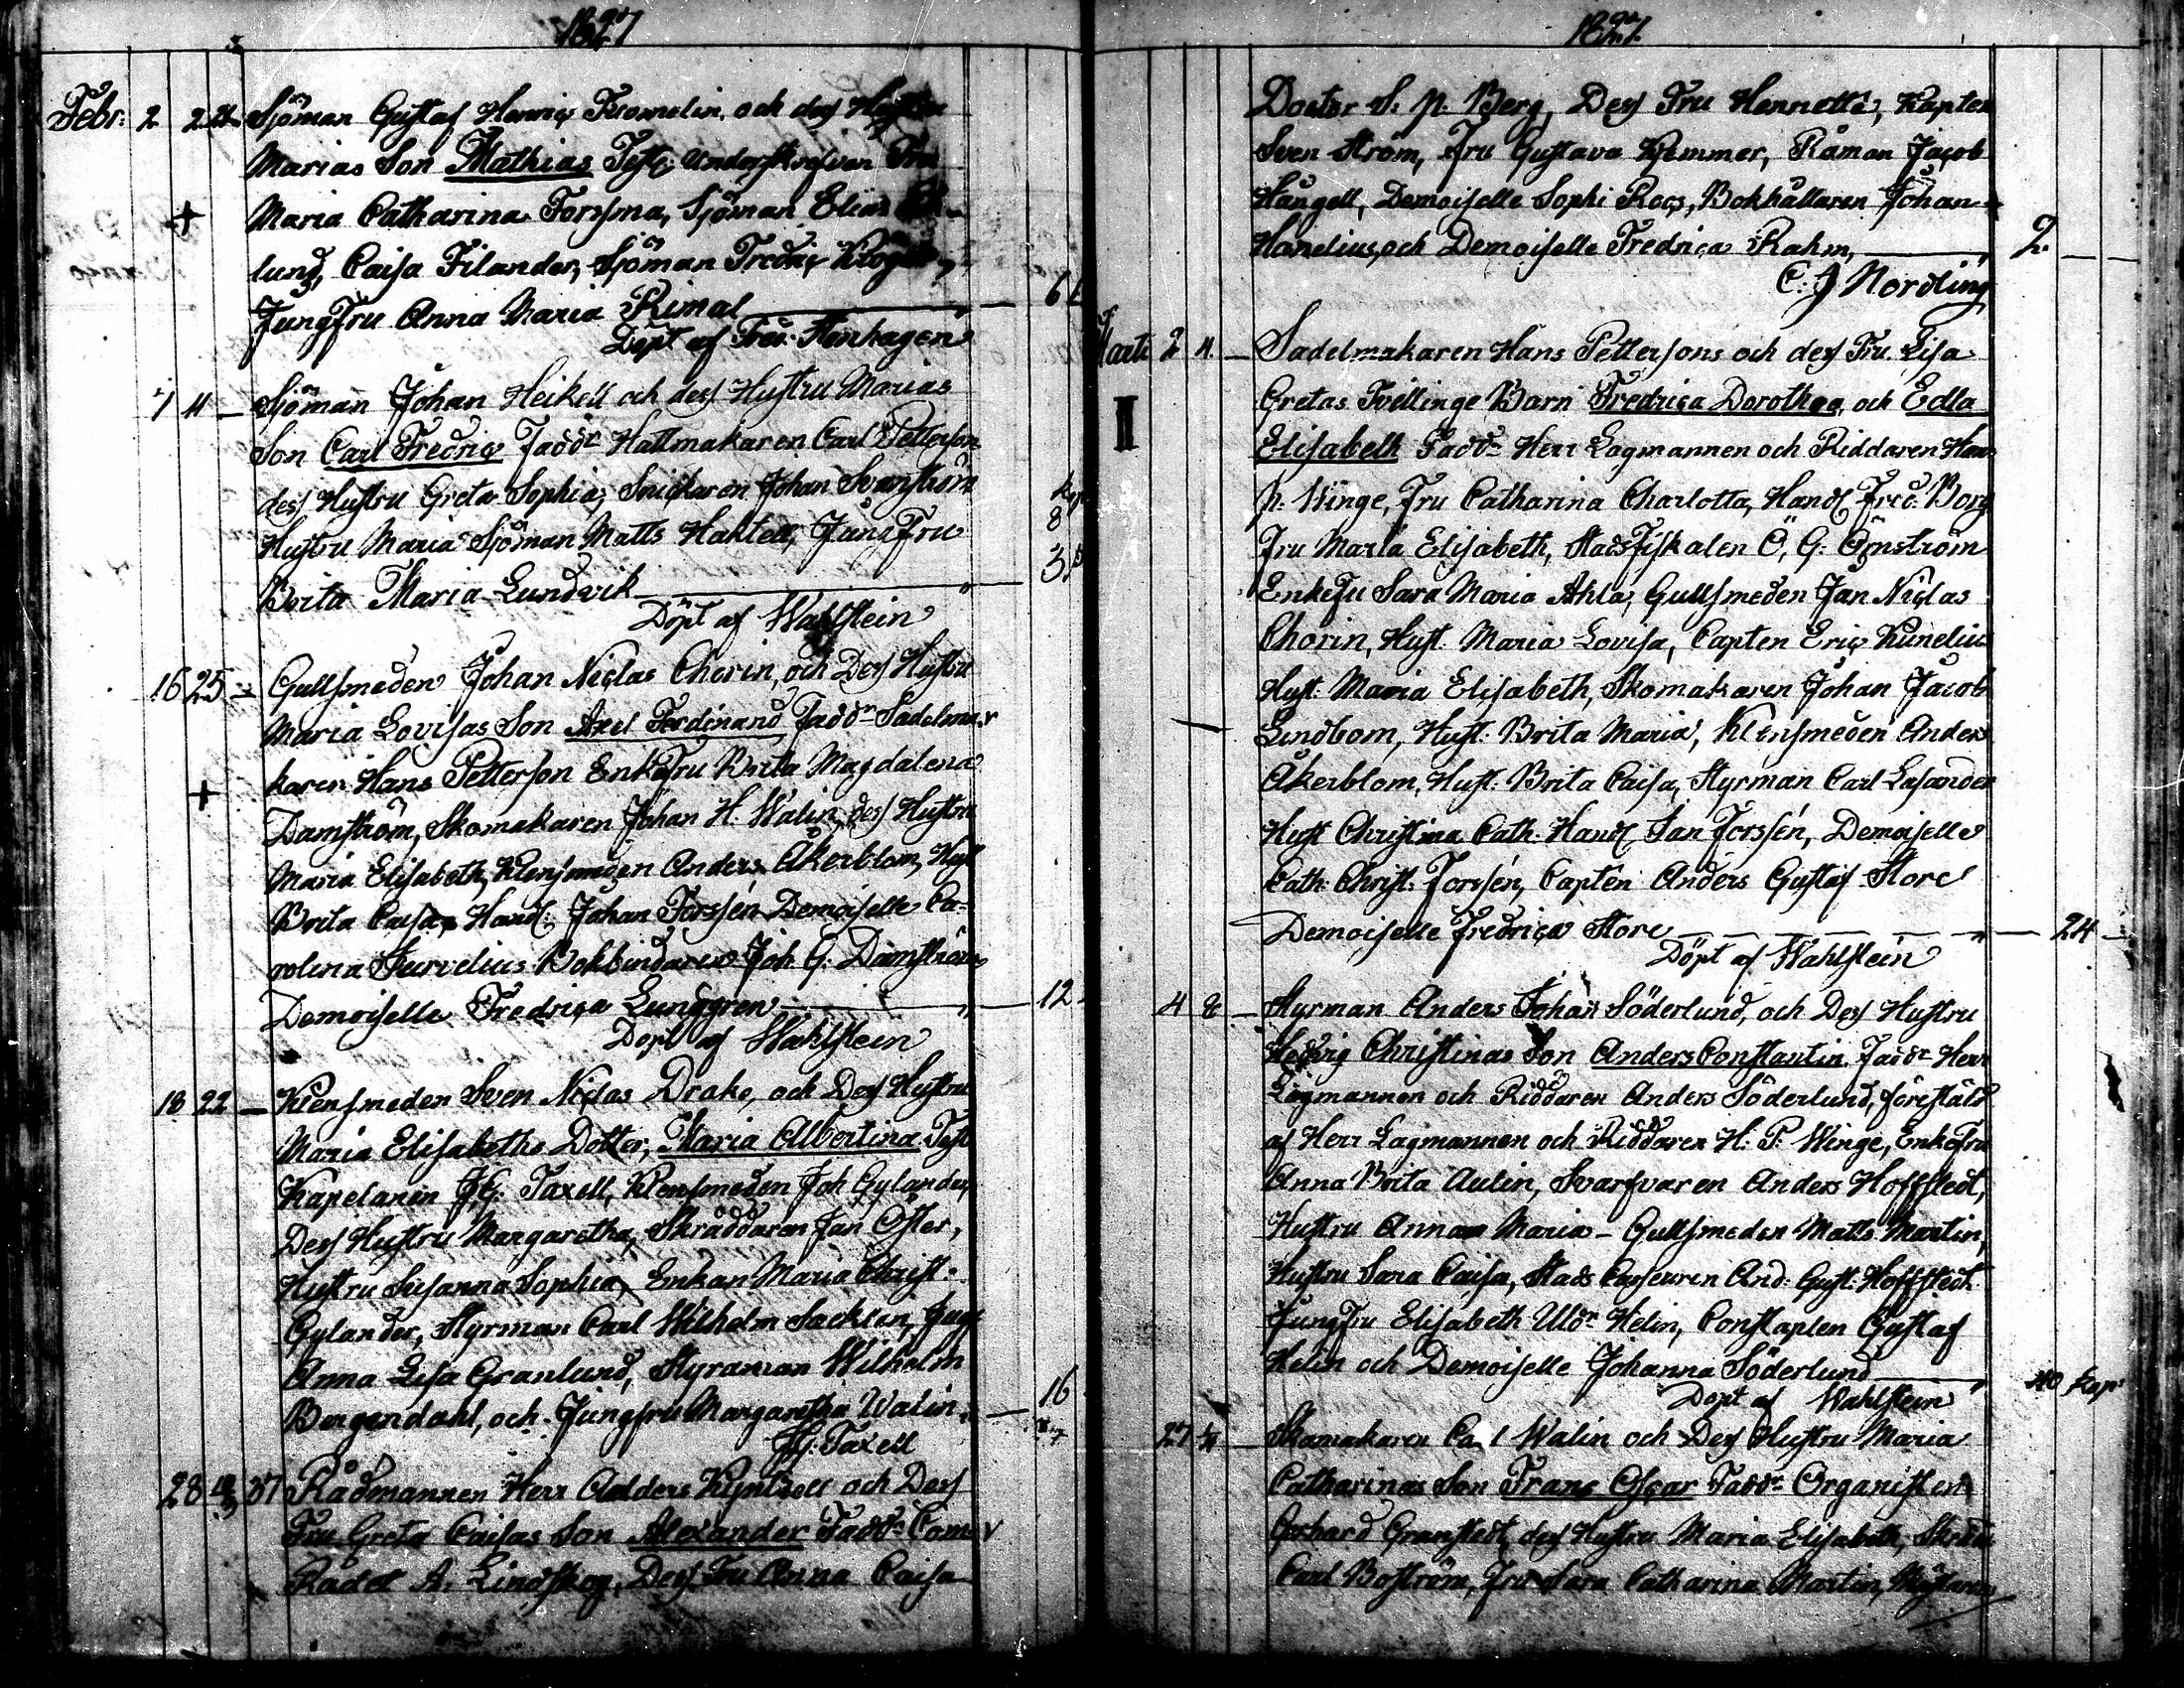 1827
Febr: 2 2 Sjöman Gustaf Henric och dess
Marias Son Mathias Test: underskrefvan Fru
+ Maria Catharina Forssma, Sjöman Elias
lund, Caisa Filander, Sjöman Fredric
JungFru Anna Maria Rimal 6
Döpt af Stenhagen
7 11 Sjöman Johan Heikell och dess Hustru Marias
Son Carl Fredric Faddr Hattmakaren Carl Petterson
dess Hustru Greta Sophia, Snickaren Johan Svanström
Hustru Maria Sjöman Matts JungFru
Brita Maria Lundvik 3
Döpt af Wahlstein
16 25 Gullsmeden Johan Niclas Chorin, och Dess Hustru
Maria Lovisas Son Axel Ferdinand Faddr Sadelma
+ karen Hans Petterson EnkeFru Brita Magdalena
Damström, Skomakaren Johan H. Walin, dess Hustru
Maria Elisabeth, Klensmeden Anders Åkerblom, Hust
Brita Caisa, Handl: Johan Forssén Demoiselle Ca-
rolina Bokbindaren Joh. G. Damström
Demoiselle Fredrica Lunggren 12
Döpt af Wahlstein
18 22 Klensmeden Sven Niclas Drake, och Dess Hustru
Maria Elisabeths Dotter, Maria Albertina Test
Kapelanen J.G. Taxell, Klensmeden Joh Gylander,
Dess Hustru Margaretha, Skräddaren Jan Öster,
Hustru Susanna Sophia, Enkan Maria Christ:
Gylander, Styrman Carl Wilhelm Jugf
Anna Lisa Granlund, Styrman Wilhelm
Bergendahl, och Jungfru Margaretha Walin 16
J.G. Taxell
28 37 Rådmannen Herr Anders och Dess
Fru Greta Caisas Son Alexander Faddr: Com
Rådet A. Lindskog, Dess Fru Anna Caisa
1827.
Doctor S. P. Berg, Dess Fru Henrietta, Kapten
Sven Ström, Fru Gustava Råman Jacob
Hångell, Demoiselle Sophi Roos, Bokhållaren Johan
Hanelius, och Demoiselle Fredrica Rahm, 2
C. J Nordling
Marti 2 4. Sadelmakaren Hans Pettersons och dess Fru Lisa
Gretas Tvillinge Barn Fredrica Dorothea och Edla
II Elisabeth Faddr Herr Lagmannen och Riddaren Hans
P. Winge, Fru Catharina Charlotta, Handl Fred: Borg
Fru Maria Elisabeth, StadsFiskalen O, G: Önström
EnkeFu Sara Maria Ahla, Gullsmeden Jan Niclas
Chorin, Hust. Maria Lovisa, Capten Eric Kunelius
Hust: Maria Elisabeth, Skomakaren Johan Jacob
Lundbom, Hust: Brita Maria, Klensmeden Anders
Åkerblom, Hust: Brita Caisa, Styrman Carl Lasander
Hust Christina Cath: Handl Jan Forssén, Demoiselle
Cath: Christ: Forssén, Capten Anders Gustaf Store
Demoiselle Fredrica Store 24
Döpt af Wahlstein
4 8 Styrman Anders Johan Söderlund, och Dess Hustru
Hedvig Christinas Son Anders Constantin Faddr Herr
Lagmannen och Riddaren Anders Söderlund, föreställd
af Herr Lagmannen och Riddaren H: P: Winge, EnkeFru
Anna Brita Aulin, Svarfvaren Anders Hoffstedt,
Hustru Anna Maria - Gullsmeden Matts Martin,
Hustru Sara Caisa, Stads Casseuren And: Gust: Hoffstedt
JungFru Elisabeth Uldr Helin, Constaplen Gustaf
Helin och Demoiselle Johanna Söderlund 40 Kop:
Döpt af Wahlstein
27 Skomakaren Carl Walin och Dess Hustru Maria
Catharinas Son Frans Oscar Faddr Organisten
Gerhard Granstedt, dess Hustru Maria Elisabeth,
Carl Boström, Fru Sara Catharina Martin,